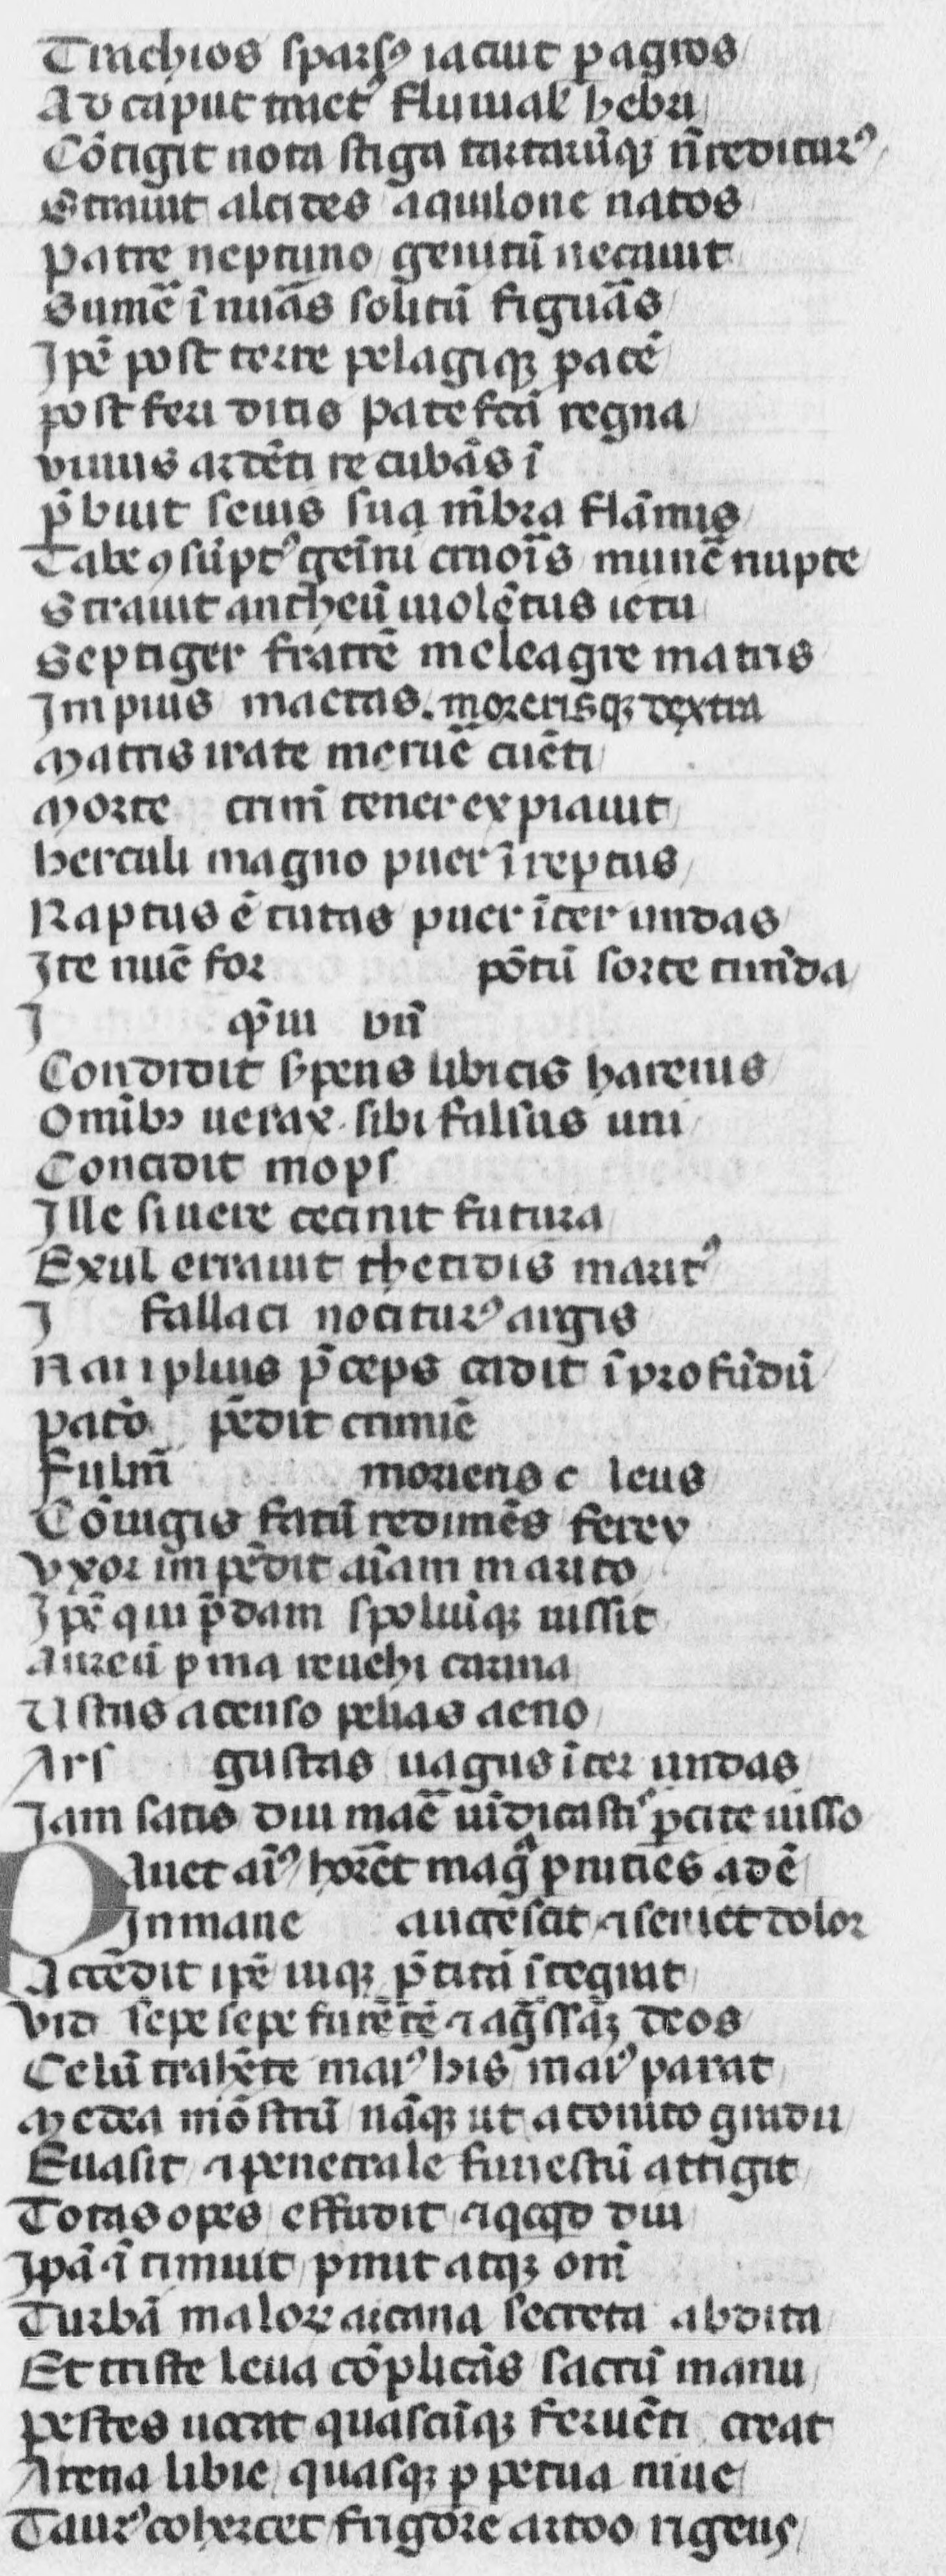 Trachios sparsꝰ iacuit p agros
Ad caput triuetꝰ fluuial hebri
Cōtigit nota stiga tartarūqꝫ ñ rediturꝰ
Strauit alcides aquilone natos
Patre neptuno genitū necauit
Sumē ī nũas solitū figuãs
Ipē post terre pelagiqꝫ pacē
post feri ditis patefcā regna
viuus ardēti recubās ī
p̄buit seuis sua mēbra flāmis
Tabe ꝯsūptꝰ gemini cruoīs munē nupte
Strauit antheū uiolētus ictu
Septiger fratrē meleagre matris
Impius mactas. morerisqꝫ dextra
Matris irate meruē cūcti
Morte crim̄ tener expiauit
herculi magno puer īreptus
Raptus ē tutas puer īter undas
Ite nuc̄ for pōtū sorte timēda
I q̄uī vñ
Condidit s̄pens libicis harenis
Omībꝫ uerax sibi falsus uni
Concidit mops
Ille si uere cecinit futura
Exul errauit thetidis maritꝰ
I fallaci nociturꝰ argis
Nauplius p̄ceps cadit ī profūdū
patō pēdit crimīe
Fulm̄ moriens c leus
Cōiugis fatū redimēs ferev
vxor impēdit aīam marito
Ipē qui p̄dam spoliūqꝫ iussit
Aureū p̄ma reuehi carina
Ustus accenso pelias aeno
Ars gustas uagus īter undas
Iam satis diui maē uīdicastiˢ p̄cite iusso
Pauet aīꝰ horret magᵃ p̄nities adē
Inmane aucrescit ⁊ semet dolor
Accēdit ipē uiqꝫ p̄titā ītegrat
vid sepe sepe furētē ⁊ ag̃ssāꝫ deos
Celū trahēte maiꝰ his maiꝰ parat
Medea mōstrū nāqꝫ ut attonito gradu
Euasit ⁊ penetrale funestū attigit
Totas opes effudit ⁊ qcqd diu
Ipā ⁊ timuit p̄mit atqꝫ om̄
Turbā maloꝝ arcana secreta abdita
Et triste leua cōplicās sacrū manu
pestes uocat quascūqꝫ feruēti creat
Arena libie quasqꝫ p petua niue
Taurꝰ cohercet frigore artoo rigens